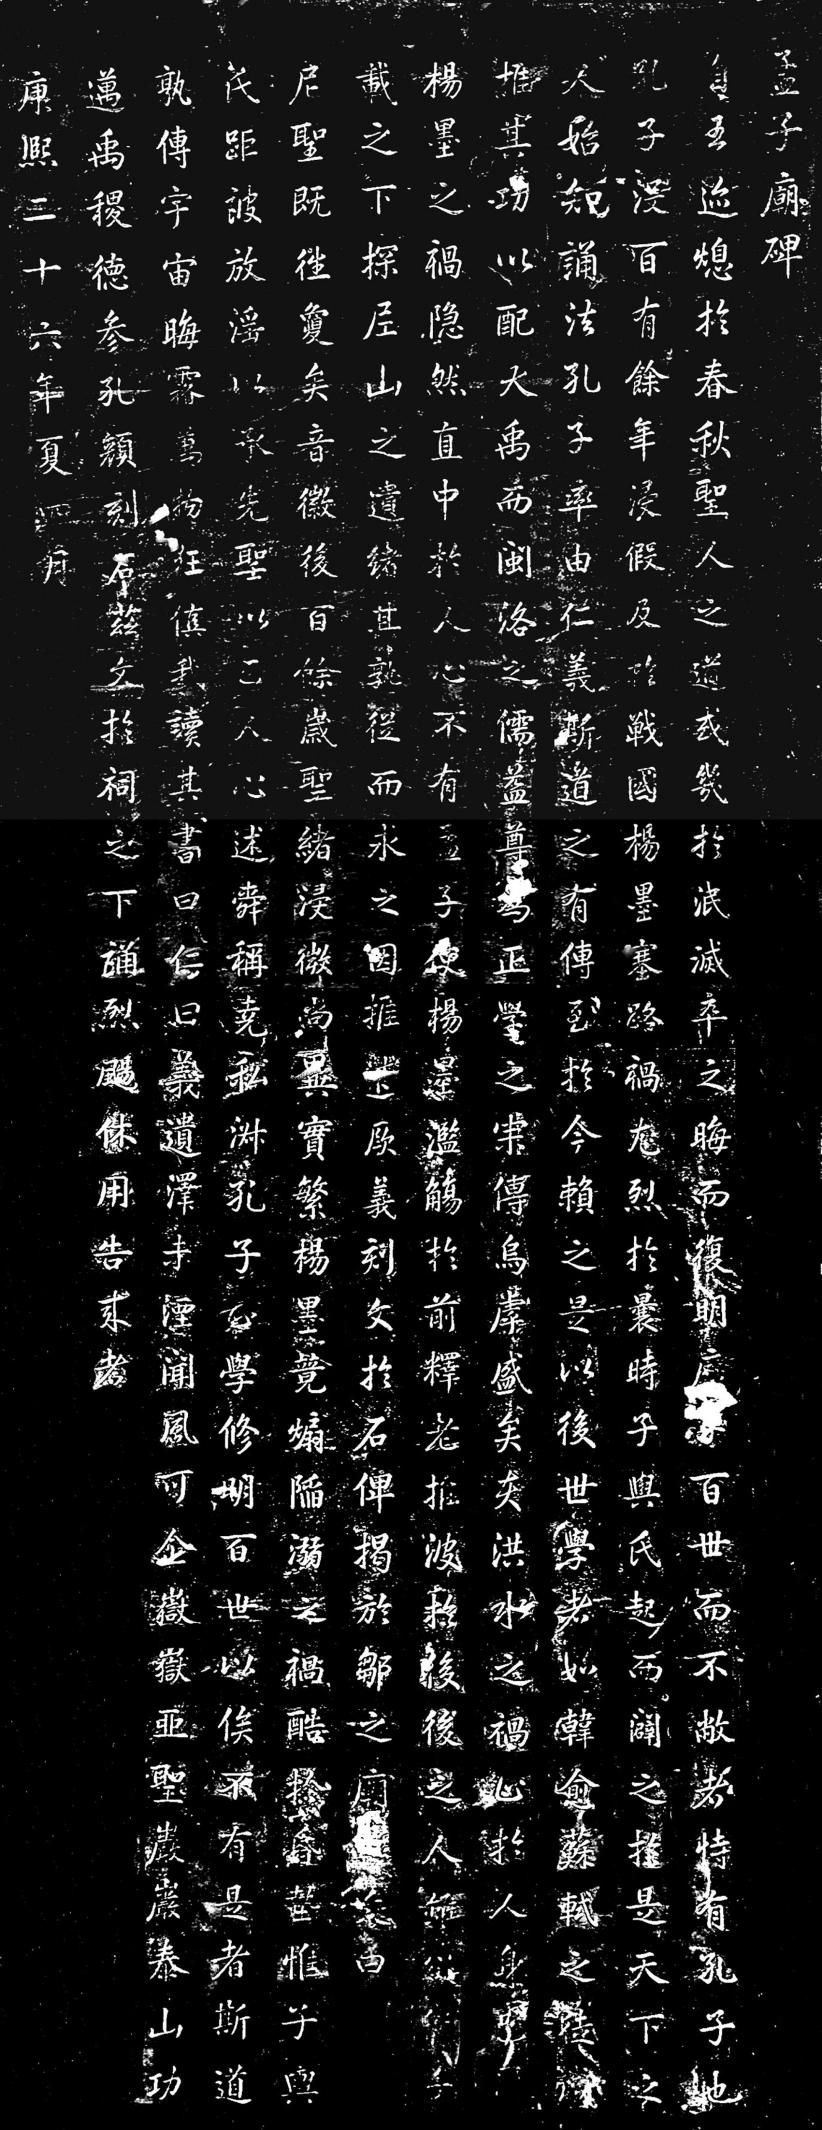 孟子廟碑
自王迹熄於春秋聖人之道或幾於泯滅卒之晦而復明百世而不敝者特有孔子也
孔子沒百有餘年浸假及於戰國楊墨塞路禍尤烈於曩時子輿氏起而闢之於是天下之
人始知誦法孔子率由仁義斯道之有傳至於今賴之是以後世學者如韓愈蘇軾之
推其功以配大禹而閩洛之儒益尊為正學之宗傳烏虖盛矣夫洪水之禍止於人身
楊墨之禍隱然直中於人心不有孟子使楊墨濫觴於前釋老推波於後後之人
載之下探尼山之遺緒其孰從而求之因推崇厥義刻文於石俾揭於鄒之廟曰
尼聖既徃夐矣音徽後百餘歲聖緒浸微尚異實繁楊墨竟煽陷溺之禍酷惟子輿
氏距詖放淫以承先聖以正人心述舜稱堯私淑孔子正學修明百世以俟不有是者斯道
孰傳宇宙晦霧萬物狂值我讀其書曰仁曰義遺澤未湮聞風可企嶽嶽亞聖巖巖泰山功
邁禹稷德參孔顏刻石茲文於祠之下誦烈颺休用告來者
康熙二十六年夏四月